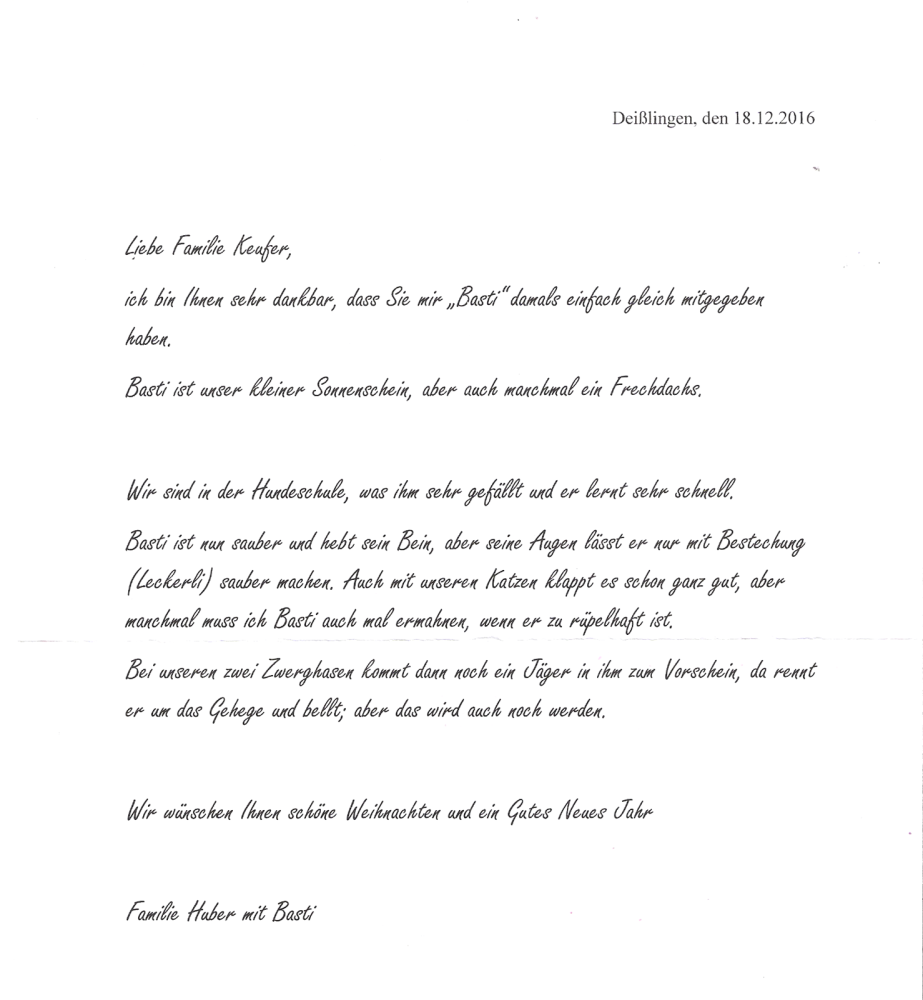 Deißlingen, den 18.12.2016
Liebe Familie Keufer,
ich bin Ihnen sehr dankbar, dass Sie mir „Basti“ damals einfach gleich mitgegeben
haben.
Basti ist unser kleiner Sonnenschein, aber auch manchmal ein Frechdachs.
Wir sind in der Hundeschule, was ihm sehr gefällt und er lernt sehr schnell.
Basti ist nun sauber und hebt sein Bein, aber seine Augen lässt er nur mit Bestechung
(Leckerli) sauber machen. Auch mit unseren Katzen klappt es schon ganz gut, aber
manchmal muss ich Basti auch mal ermahnen, wenn er zu rüpelhaft ist.
Bei unseren zwei Zwerghasen kommt dann noch ein Jäger in ihm zum Vorschein, da rennt
er um das Gehege und bellt; aber das wird auch noch werden.
Wir wünschen Ihnen schöne Weihnachten und ein Gutes Neues Jahr
Familie Huber mit Basti